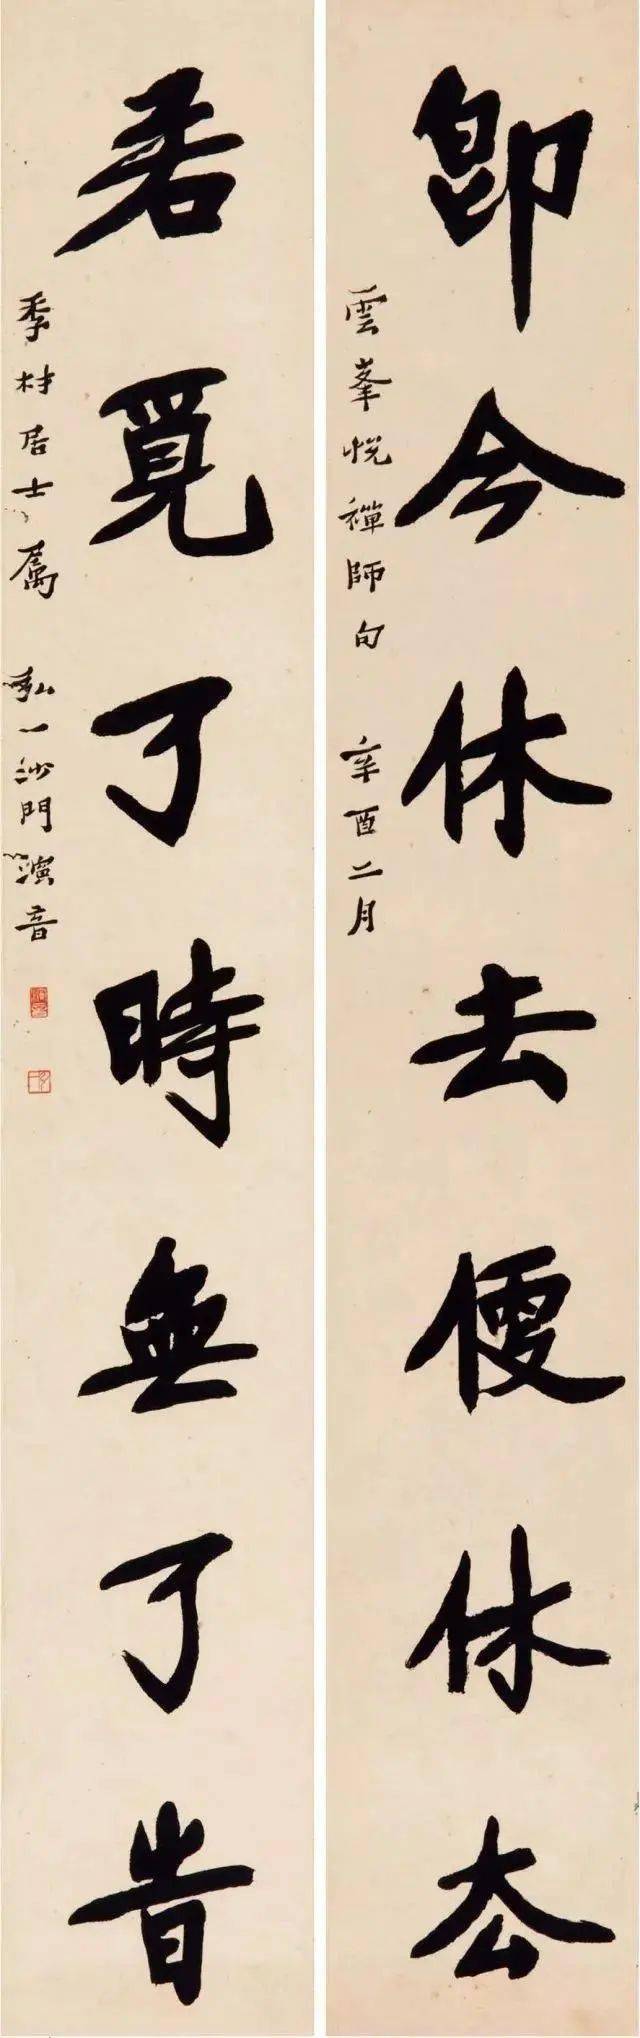 即今休去便休去
雲峯悅禪師句 辛酉二月
若覓了時無了旹
季材居士屬 弘一沙門演音